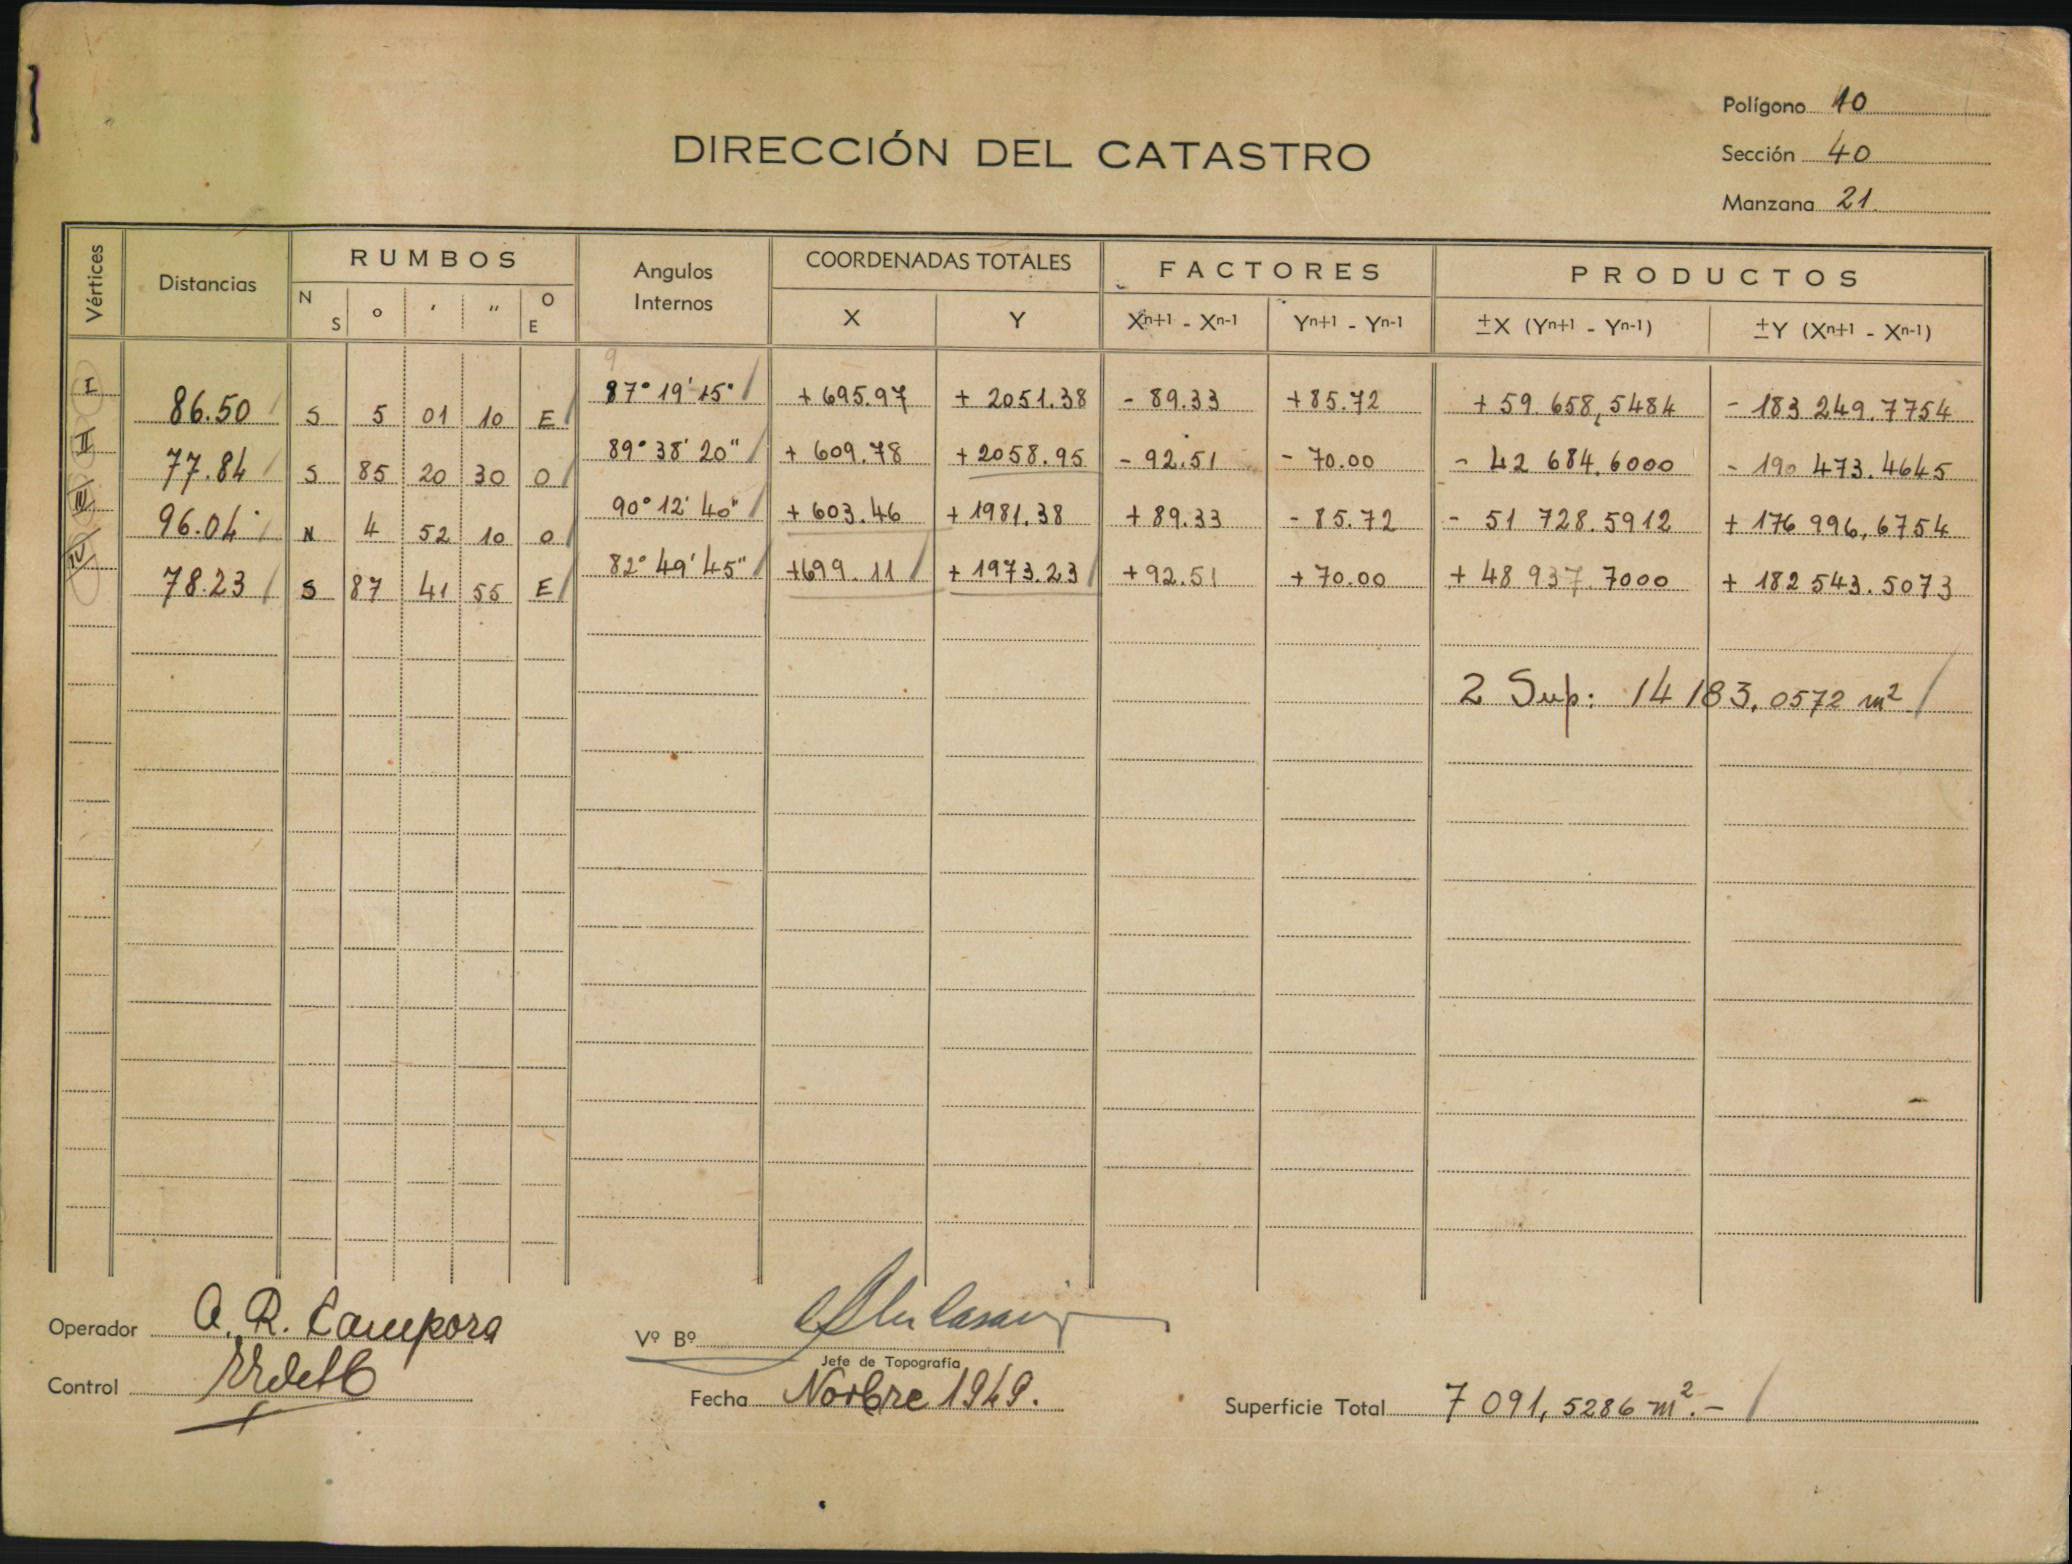 Polígono 10
DIRECCIÓN DEL CATASTRO
Sección 40
Manzana 21.
Vértices Distancias RUMBOS Angulos Internos COORDENADAS TOTALES FACTORES PRODUCTOS
N S ° ' " O E X Y Xn+1 - Xn-1 Yn+1 - Yn-1 ±X (Yn+1 - Yn-1) ±Y (Xn+1 - Xn-1)
I 87° 19' 15" + 695.97 + 2051.38 - 89.33 + 85.72 + 59 658,5484 - 183 249.7754
86.50 S 5 01 10 E
II 89° 38' 20" + 609.78 + 2058.95 - 92.51 - 70.00 - 42 684.6000 - 190 473.4645
77.84 S 85 20 30 O
III 90° 12' 40" + 603.46 + 1981.38 + 89.33 - 85.72 - 51 728.5912 + 176 996,6754
96.04 N 4 52 10 O
IV 82° 49' 45" + 699.11 + 1973.23 + 92.51 + 70.00 + 48 937.7000 + 182 543.5073
78.23 S 87 41 55 E
2 Sup: 14 183,0572 m²
Operador A. R. Campora
Vº Bº
Jefe de Topografía
Control
Fecha Novbre 1949.
Superficie Total 7 091,5286 m².-